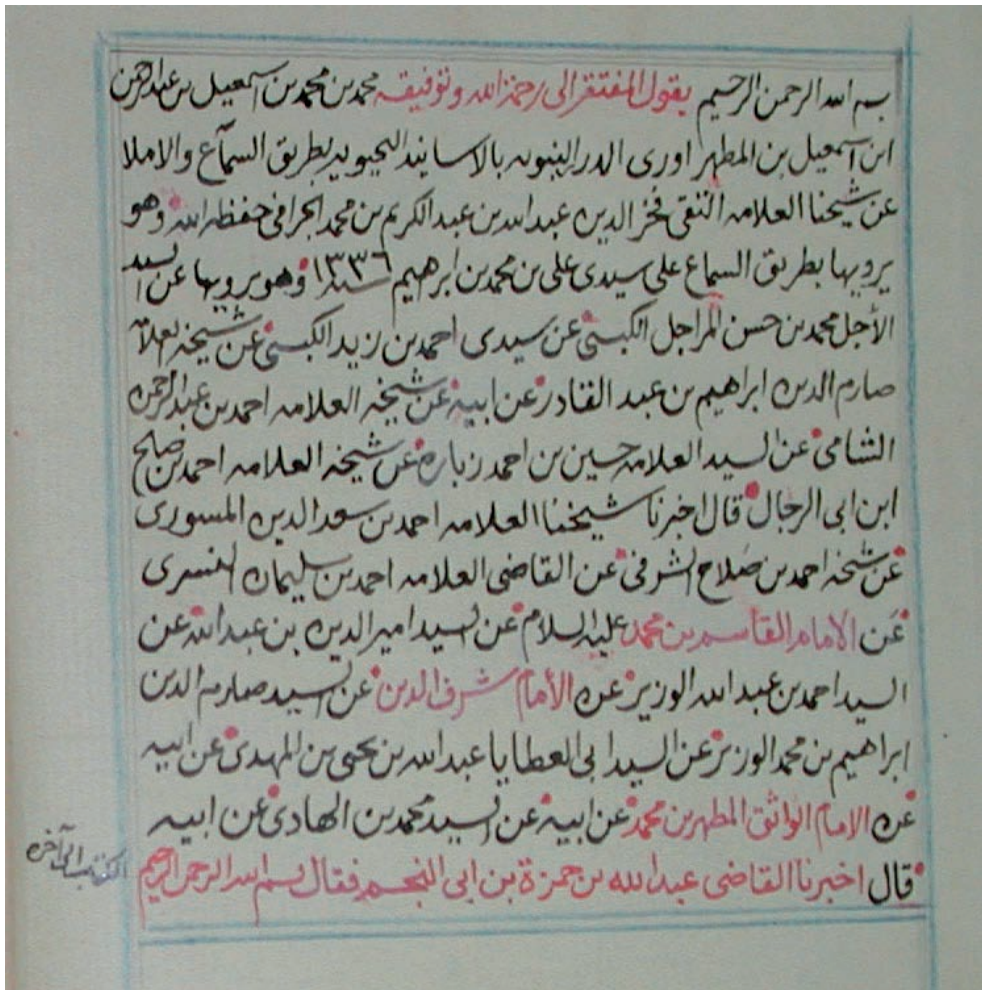 بسم الله الرحمن الرحيم يقول المفتقر الى رحمة الله وتوفيقه محمد بن محمد بن اسمعيل بن عبد الرحمن
ابن اسمعيل بن المطهر اروى الدرر النبويه بالاسانيد اليحيويه بطريق السماع والاملا
عن شيخنا العلامه التقى فخر الدين عبد الله بن عبد الكريم بن محمد الجرافى حفظه الله وهو
يرويها بطريق السماع على سيدى على بن محمد بن ابرهيم سنة ١٣٣٦ وهو يرويها عن السيد
الأجل محمد بن حسن المراجل الكبسى عن سيدى احمد بن زيد الكبسى عن شيخه العلامة
صارم الدين ابراهيم بن عبد القادر عن ابيه عن شيخه العلامه احمد بن عبد الرحمن
الشامى عن السيد العلامه حسين بن احمد زباره عن شيخه العلامه احمد بن صالح
ابن ابى الرجال قال اخبرنا شيخنا العلامه احمد بن سعد الدين المسورى
عن شيخه احمد بن صلاح الشرفى عن القاضى العلامه احمد بن سليمان
عن الامام القاسم بن محمد عليه السلام عن السيد امير الدين بن عبد الله عن
السيد احمد بن عبد الله الوزير عن الأمام شرف الدين عن السيد صارم الدين
ابراهيم بن محمد الوزير عن السيد ابى العطايا عبد الله بن يحيى بن المهدى عن ابيه
عن الامام الواثق المطهر بن محمد عن ابيه عن السيد محمد بن الهادى عن ابيه
قال اخبرنا القاضى عبد الله بن حمزة بن ابى النجم فقال بسم الله الرحمن الرحيم
الكتاب الى آخره